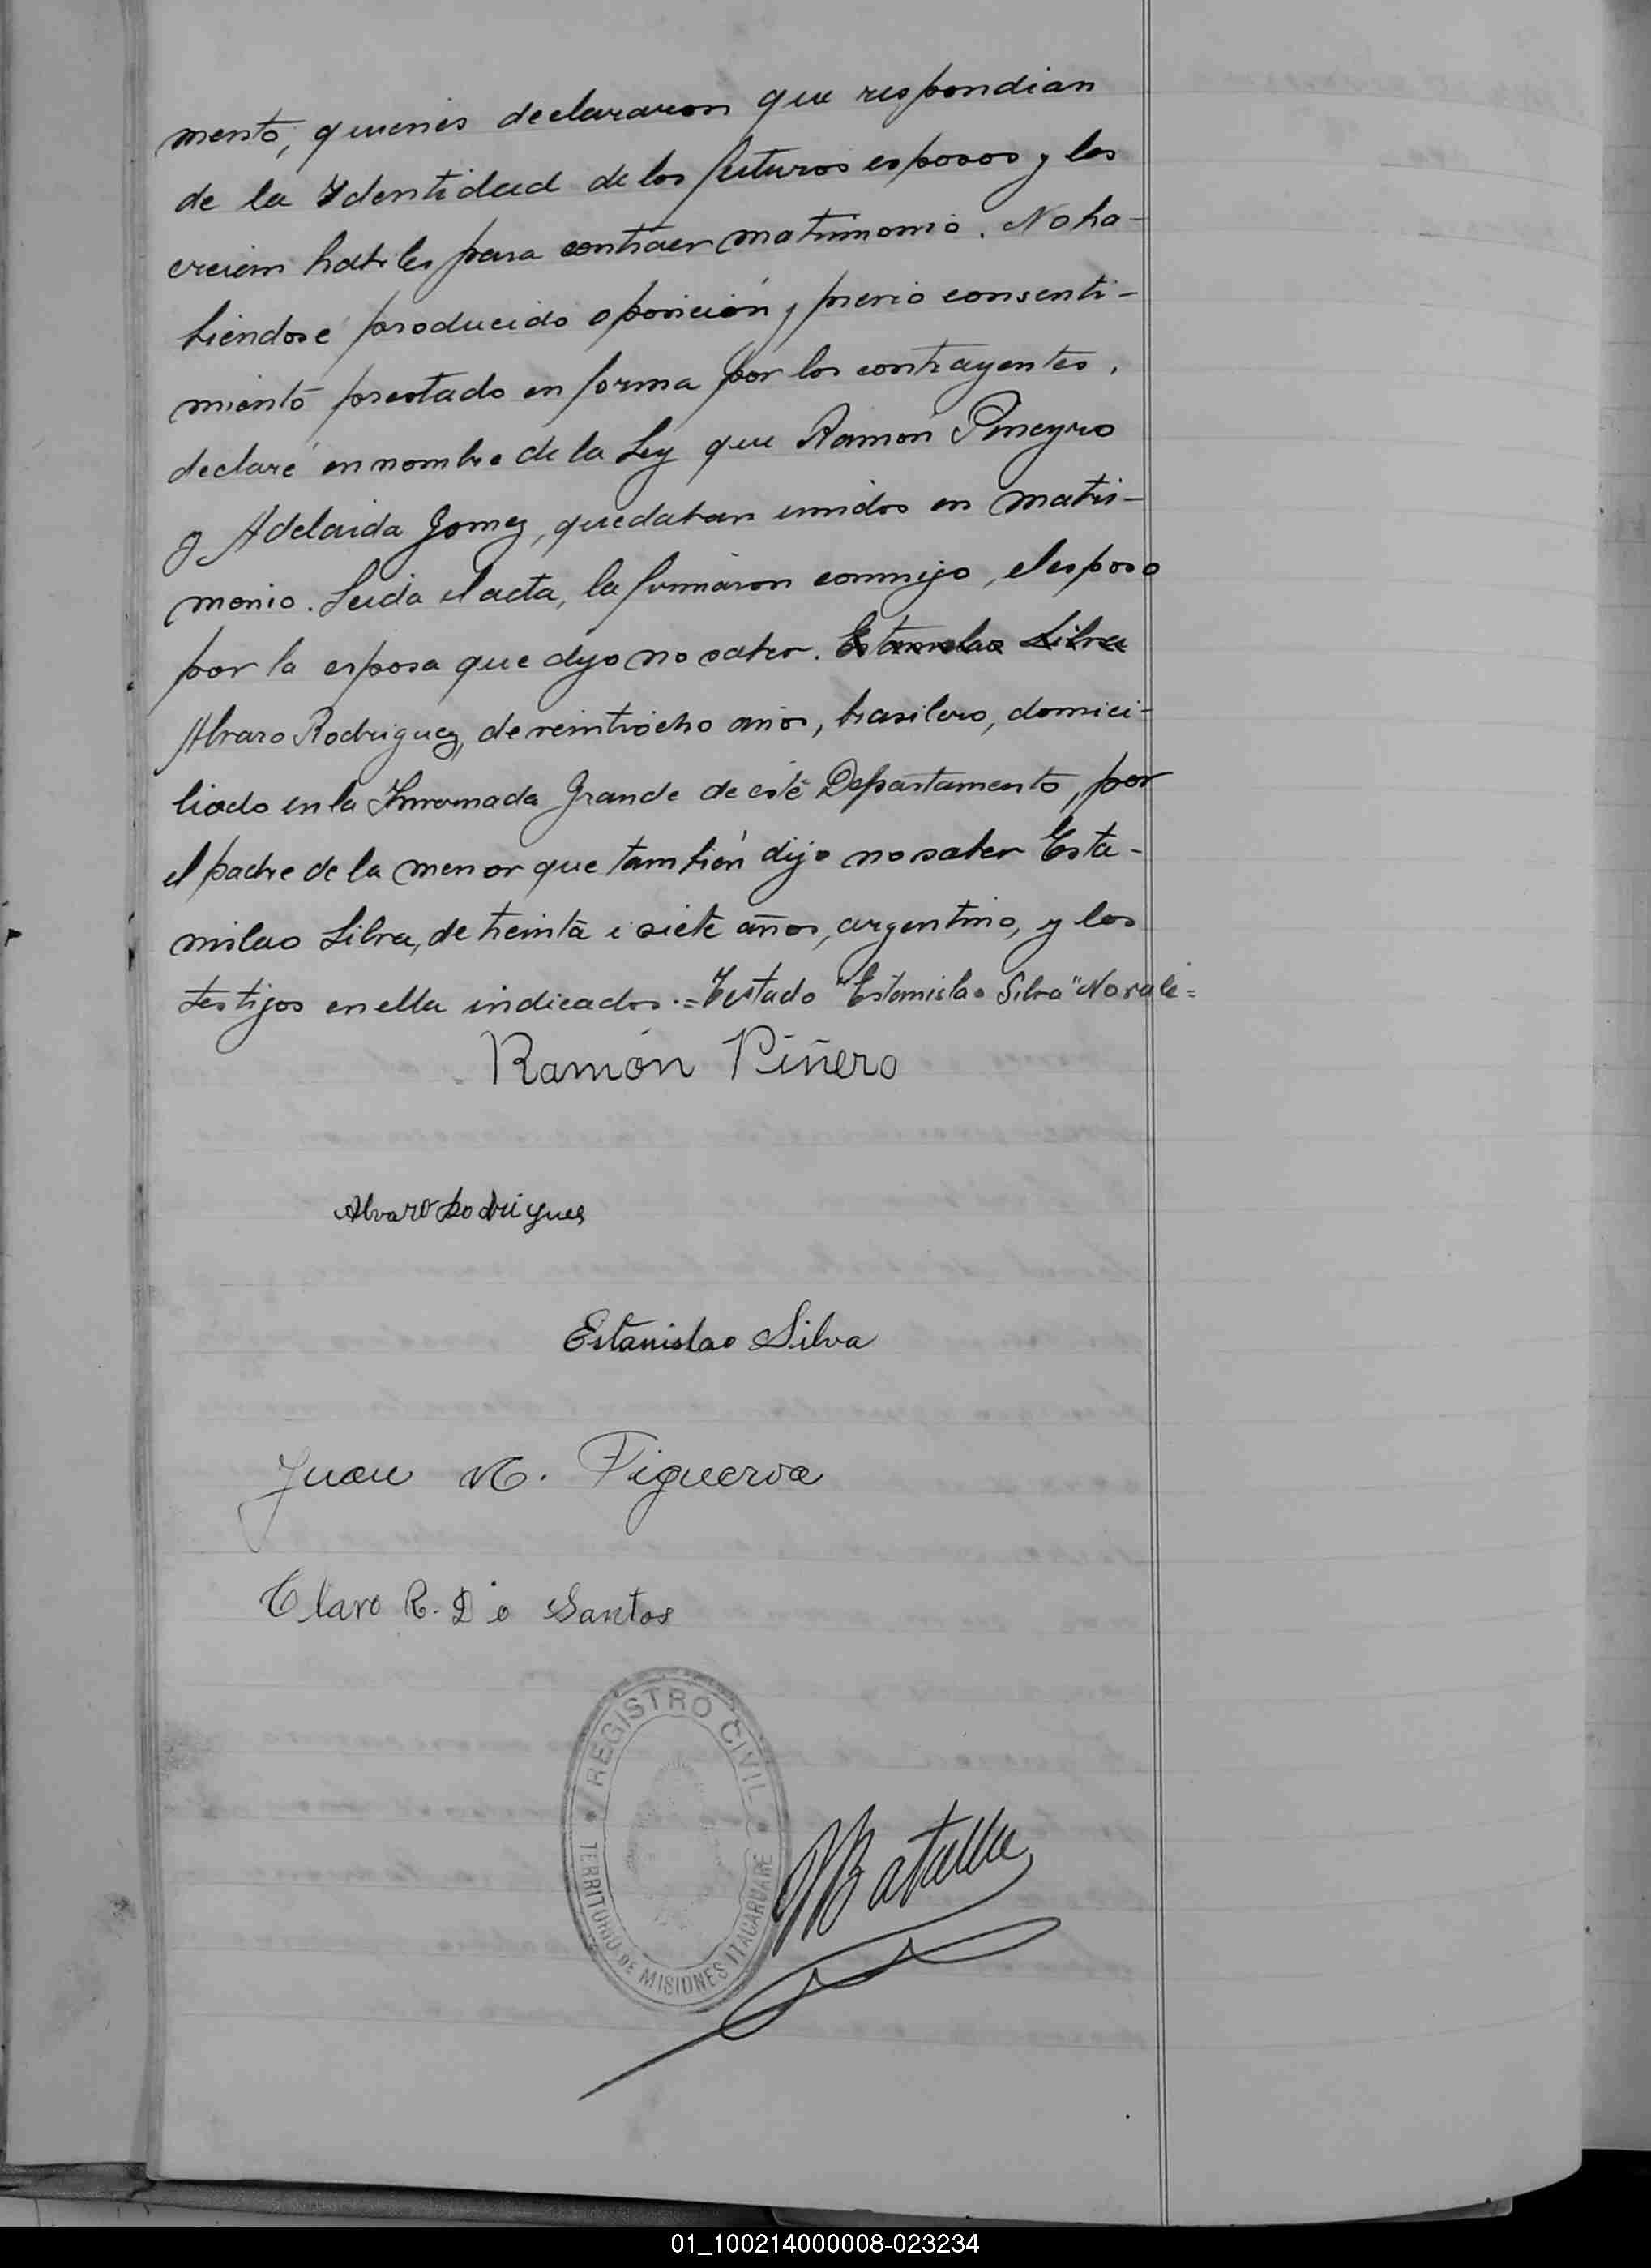 mento, quienes declararon que respondian
de la Identidad de los futuros esposos y los
creian habiles para contraer matrimonio. No ha-
biendose producido oposición, y previo consenti-
miento prestado en forma por los contrayentes,
declaré en nombre de la Ley que Ramon Pineyro
y Adelaida Gomez, quedaban unidos en matri-
monio. Leida el acta, la firmaron conmigo, el esposo
por la esposa que dijo no saber. Estanislao Silva
Alvaro Rodriguez, de veintiocho años, brasilero, domici-
liado en la Invernada Grande de esté Departamento, por
el padre de la menor que también dijo no saber Esta-
nislao Silva, de treinta i siete años, argentino, y los
testigos en ella indicados.=Testado "Estanislao Silva" No vale=
Ramón Piñero
Alvaro Rodrigues
Estanislao Silva
Juan M. Figueroa
Claro R. D o Santos
REGISTRO CIVIL
TERRITORIO DE MISIONES ITACARUARE
Batalla
01_100214000008-023234